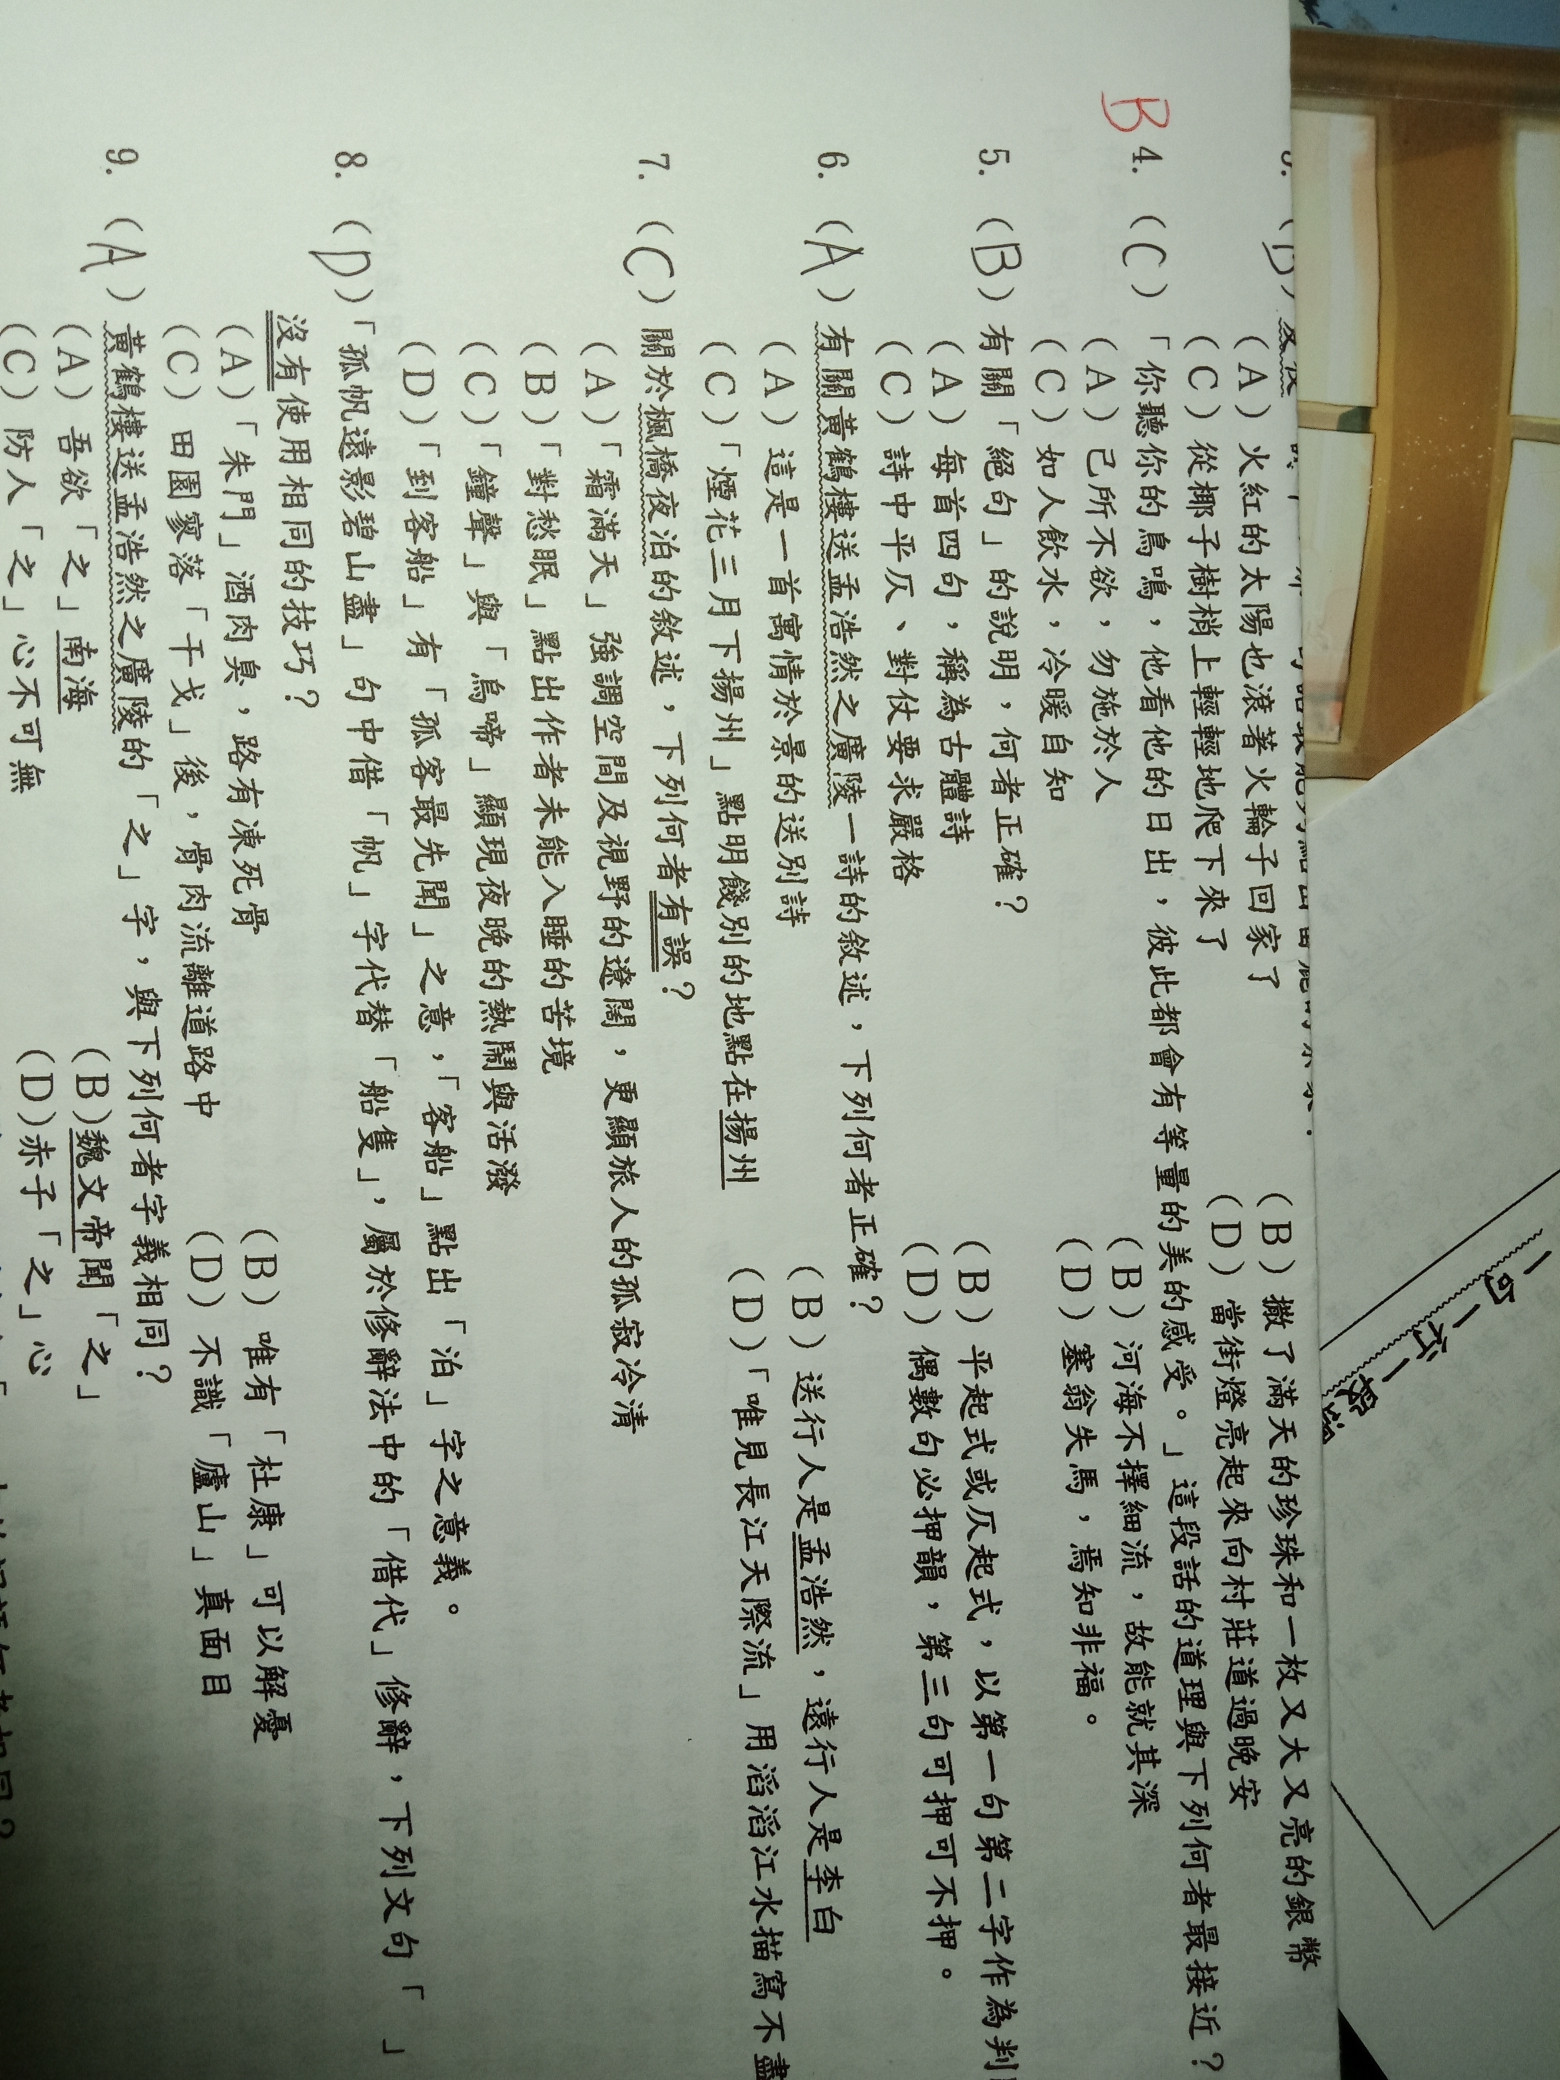 (A) 火紅的太陽也滾著火輪子回家了 (B) 撒了滿天的珍珠和一枚又大又亮的銀幣
(C) 從椰子樹梢上輕輕地爬下來了 (D) 當街燈亮起來向村莊道過晚安
B 4. (C) 「你聽你的鳥鳴，他看他的日出，彼此都會有等量的美的感受。」這段話的道理與下列何者最接近？
(A) 己所不欲，勿施於人 (B) 河海不擇細流，故能就其深
(C) 如人飲水，冷暖自知 (D) 塞翁失馬，焉知非福。
5. (B) 有關「絕句」的說明，何者正確？
(A) 每首四句，稱為古體詩 (B) 平起式或仄起式，以第一句第二字作為判
(C) 詩中平仄、對仗要求嚴格 (D) 偶數句必押韻，第三句可押可不押。
6. (A) 有關黃鶴樓送孟浩然之廣陵一詩的敘述，下列何者正確？
(A) 這是一首寓情於景的送別詩 (B) 送行人是孟浩然，遠行人是李白
(C)「煙花三月下揚州」點明餞別的地點在揚州 (D)「唯見長江天際流」用滔滔江水描寫不盡
7. (C) 關於楓橋夜泊的敘述，下列何者有誤？
(A)「霜滿天」強調空間及視野的遼闊，更顯旅人的孤寂冷清
(B)「對愁眠」點出作者未能入睡的苦境
(C)「鐘聲」與「烏啼」顯現夜晚的熱鬧與活潑
(D)「到客船」有「孤客最先聞」之意，「客船」點出「泊」字之意義。
8. (D)「孤帆遠影碧山盡」句中借「帆」字代替「船隻」，屬於修辭法中的「借代」修辭，下列文句「 」
沒有使用相同的技巧？
(A)「朱門」酒肉臭，路有凍死骨 (B) 唯有「杜康」可以解憂
(C) 田園寥落「干戈」後，骨肉流離道路中 (D) 不識「廬山」真面目
9. (A) 黃鶴樓送孟浩然之廣陵的「之」字，與下列何者字義相同？
(A) 吾欲「之」南海 (B)魏文帝聞「之」
(C) 防人「之」心不可無 (D)赤子「之」心